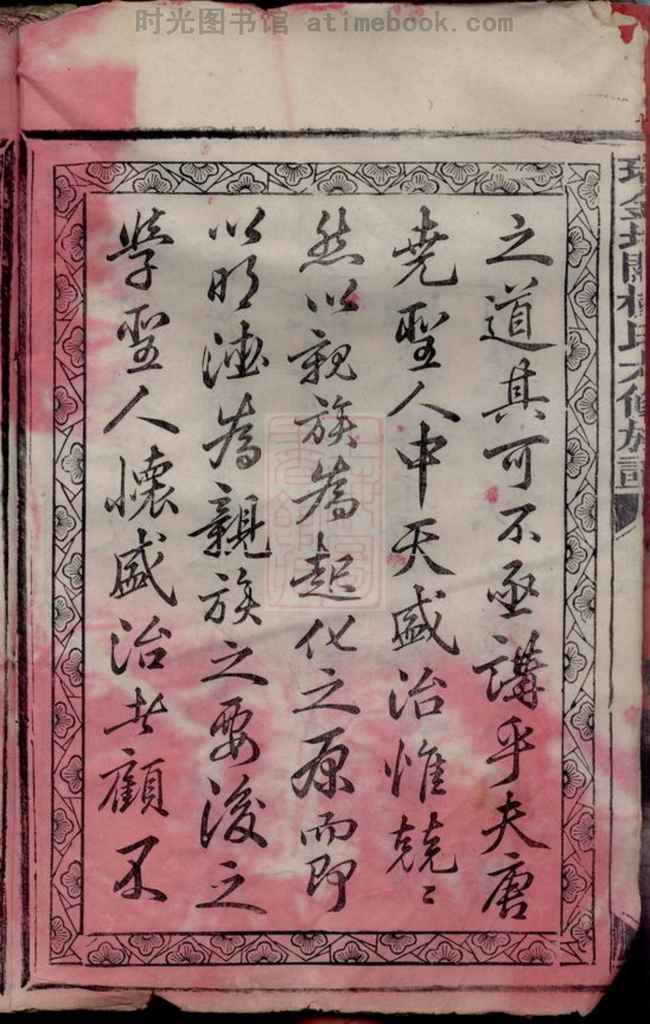 时光图书馆 atimebook.com
之道其可不亟講乎夫唐
堯聖人中天盛治惟兢〻
然以親族為起化之原而即
以明德為親族之要後之
學聖人懷盛治者顧不